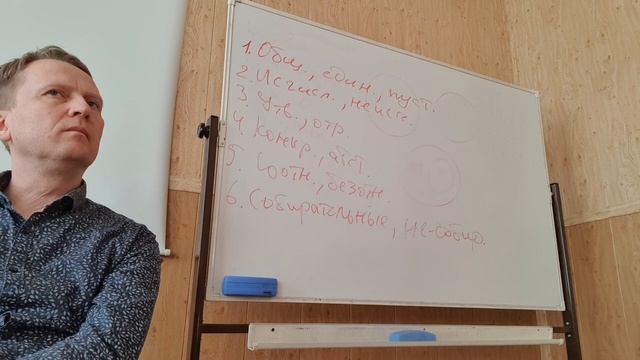 1. Общ., един., пуст.
2. Исчисл., неисч.
3. Утв., отр.
4. Конкр., абст.
5. Соотн., безотн.
6. Собирательные, не-собир.